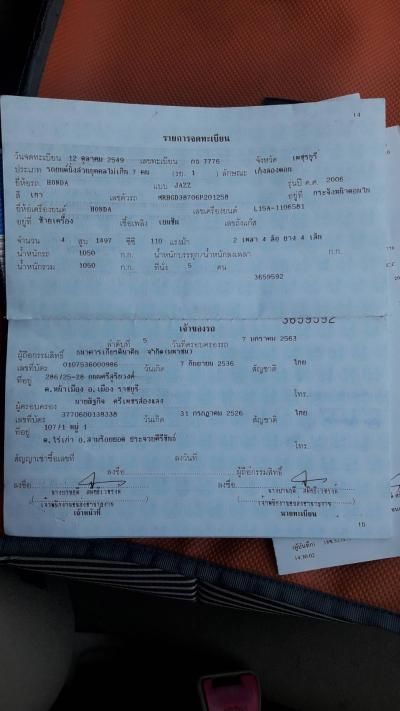 14
รายการจดทะเบียน
วันจดทะเบียน 12 ตุลาคม 2549 เลขทะเบียน กธ 7776 จังหวัด เพชรบุรี
ประเภท รถยนต์นั่งส่วนบุคคลไม่เกิน 7 คน (รย. 1 ) ลักษณะ เก๋งสองตอน
ยี่ห้อรถ HONDA แบบ JAZZ รุ่นปี ค.ศ. 2006
สี เทา เลขตัวรถ MRHGD38706P201258 อยู่ที่
ยี่ห้อเครื่องยนต์ HONDA เลขเครื่องยนต์ L15A-1106581
อยู่ที่ ซ้ายเครื่อง เชื้อเพลิง เบนซิน เลขถังแก๊ส
จำนวน 4 สูบ 1497 ซีซี 110 แรงม้า 2 เพลา 4 ล้อ ยาง 4 เส้น
น้ำหนักรถ 1050 ก.ก. น้ำหนักบรรทุก/น้ำหนักลงเพลา ก.ก.
น้ำหนักรวม 1050 ก.ก. ที่นั่ง 5 คน
3659592
3659592
เจ้าของรถ
ลำดับที่ 5 วันที่ครอบครองรถ 7 มกราคม 2563
ผู้ถือกรรมสิทธิ์ ธนาคารเกียรตินาคิน จำกัด(มหาชน)
เลขที่บัตร 0107536000986 วันเกิด 7 กันยายน 2536 สัญชาติ ไทย
ที่อยู่ 286/25-28 ถนนศรีสุริยวงศ์
ต.หน้าเมือง อ.เมือง ราชบุรี โทร.
ผู้ครอบครอง
เลขที่บัตร 3770600138338 วันเกิด 31 กรกฎาคม 2526 สัญชาติ ไทย
ที่อยู่ 107/1 หมู่ 1
ต.ไร่เก่า อ.สามร้อยยอด ประจวบคีรีขันธ์ โทร.
สัญญาเช่าซื้อเลขที่ ลงวันที่
ลงชื่อ ผู้ถือกรรมสิทธิ์
ลงชื่อ ลงชื่อ
เจ้าหน้าที่ นายทะเบียน
15
14:30:02